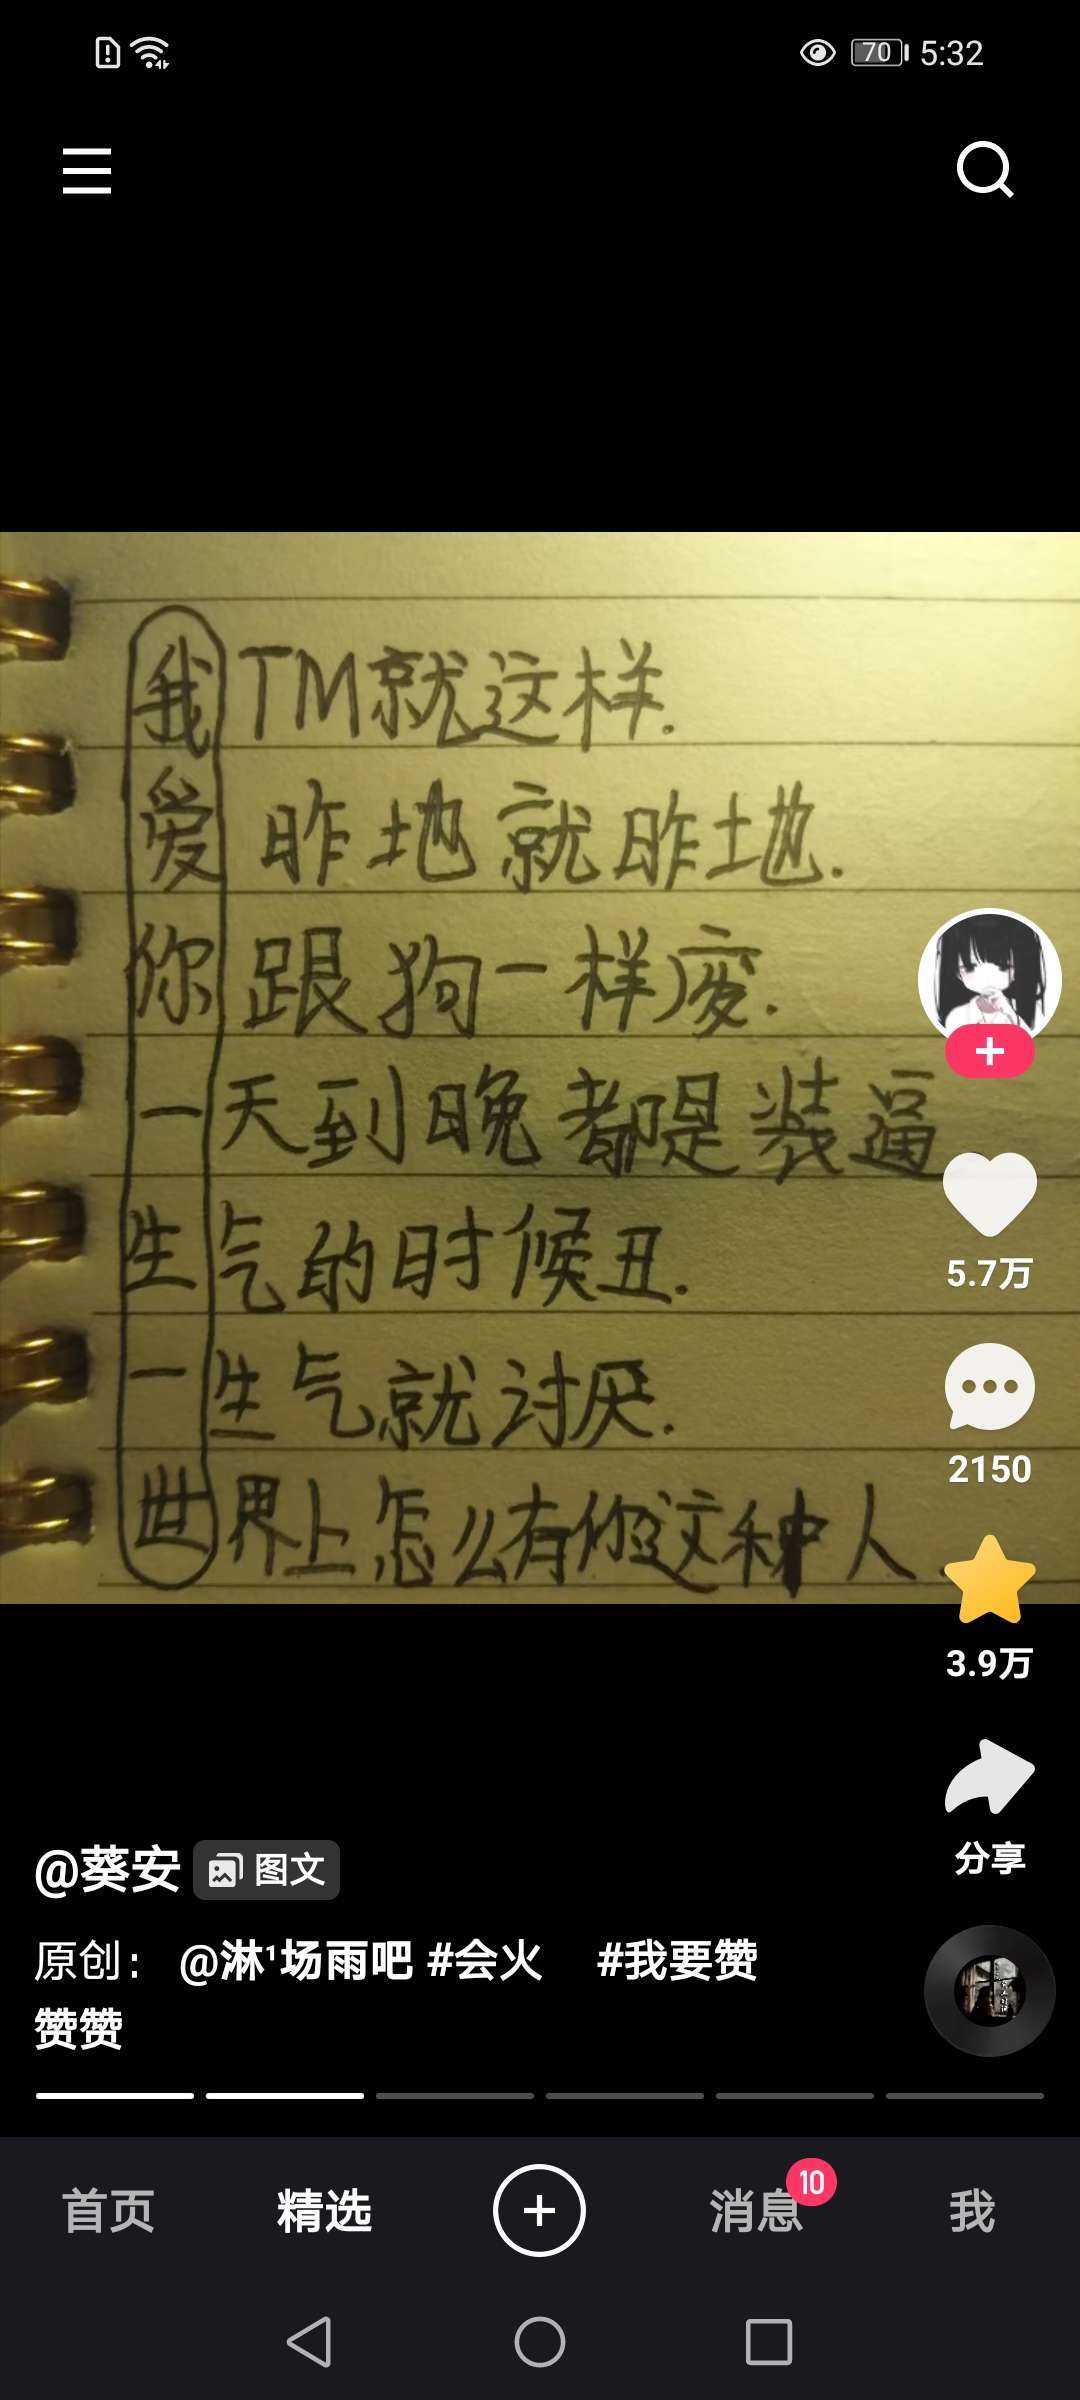 70 5:32
我TM就这样.
爱昨地就昨地.
你跟狗一样
一天到晚都是装逼
生气的时候丑.
一生气就讨厌.
世界上怎么有你这种人.
5.7万
2150
3.9万
分享
@葵安 图文
原创： @淋¹场雨吧 #会火 #我要赞
赞赞
首页 精选 消息 10 我